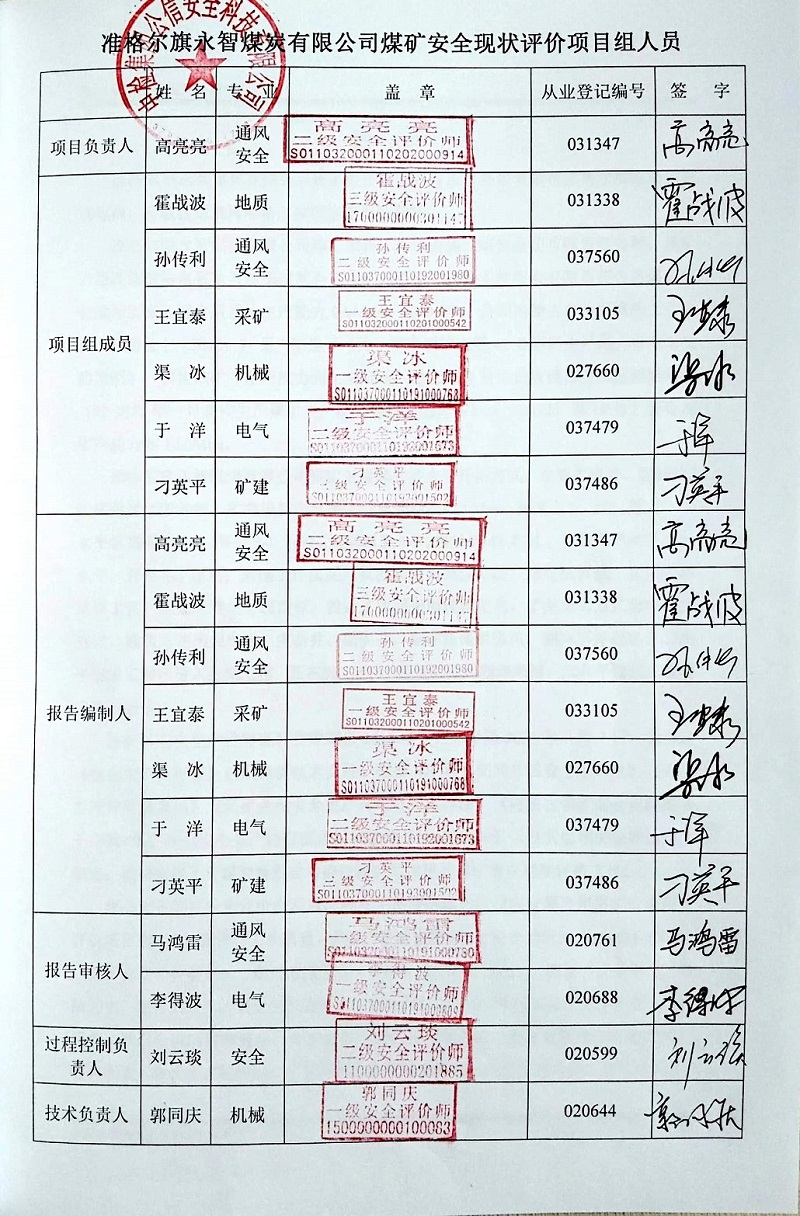 准格尔旗永智煤炭有限公司煤矿安全现状评价项目组人员
姓 名 专 业 盖 章 从业登记编号 签 字
项目负责人 高亮亮 通风安全 高亮亮 二级安全评价师 S011032000110202000914 031347 高亮亮
项目组成员
霍战波 地质 霍战波 三级安全评价师 031338 霍战波
孙传利 通风安全 孙传利 二级安全评价师 S011037000110192001980 037560
王宜泰 采矿 王宜泰 一级安全评价师 S011032000110201000542 033105 王宜泰
渠 冰 机械 渠冰 一级安全评价师 S011037000110191000768 027660 渠冰
于 洋 电气 于洋 二级安全评价师 S011037000110192001673 037479 于洋
刁英平 矿建 刁英平 三级安全评价师 S011037000110193001502 037486 刁英平
报告编制人
高亮亮 通风安全 高亮亮 二级安全评价师 S011032000110202000914 031347 高亮亮
霍战波 地质 霍战波 三级安全评价师 031338 霍战波
孙传利 通风安全 孙传利 二级安全评价师 S011037000110192001980 037560
王宜泰 采矿 王宜泰 一级安全评价师 S011032000110201000542 033105 王宜泰
渠 冰 机械 渠冰 一级安全评价师 S011037000110191000768 027660 渠冰
于 洋 电气 于洋 二级安全评价师 S011037000110192001673 037479 于洋
刁英平 矿建 刁英平 三级安全评价师 S011037000110193001502 037486 刁英平
报告审核人
马鸿雷 通风安全 马鸿雷 一级安全评价师 S011037000110191000780 020761 马鸿雷
李得波 电气 李得波 一级安全评价师 020688 李得波
过程控制负责人 刘云琰 安全 刘云琰 二级安全评价师 1100000000201885 020599 刘云琰
技术负责人 郭同庆 机械 郭同庆 一级安全评价师 1500000000100083 020644 郭同庆